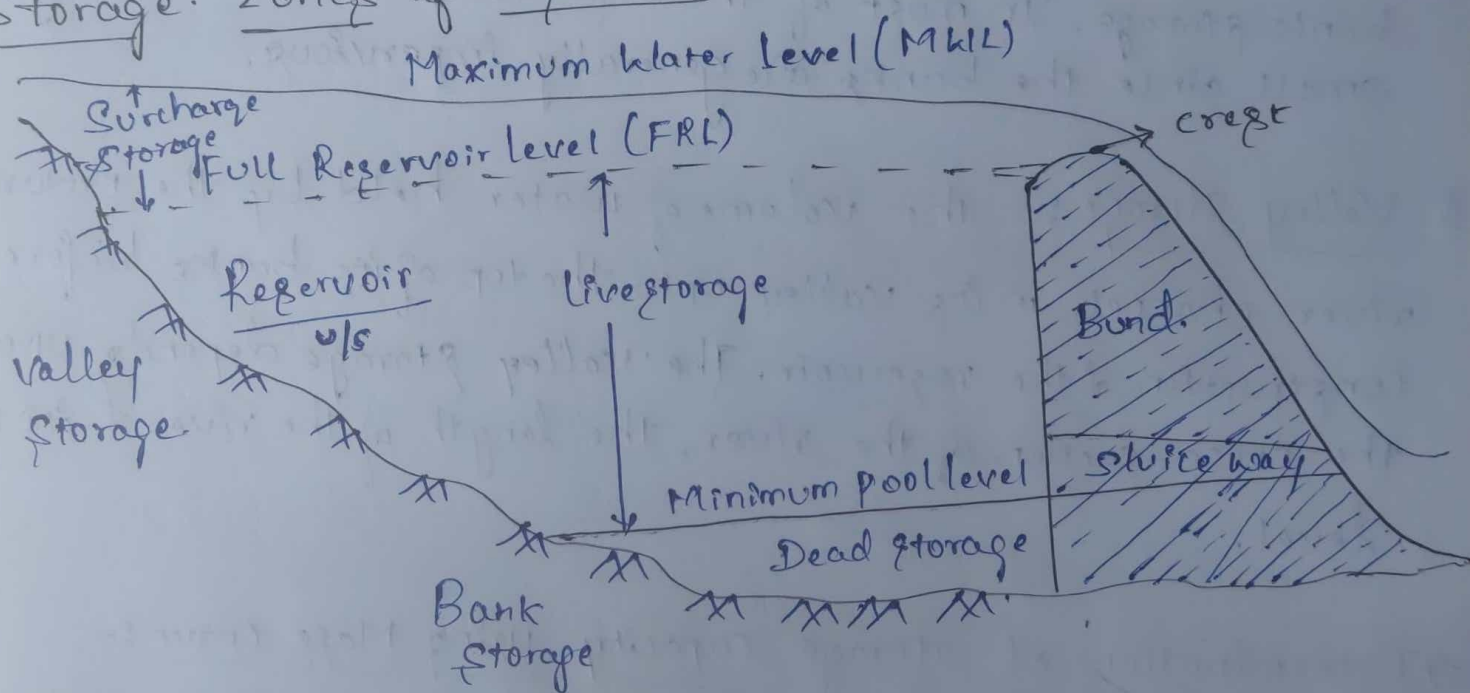 Storage. Zones of
Maximum Water Level (MWL)
Surcharge
Storage
Full Reservoir level (FRL)
crest
Reservoir
u/s
livestorage
Bund.
Valley
Storage
Minimum pool level
Sluice way
Dead storage
Bank
Storage